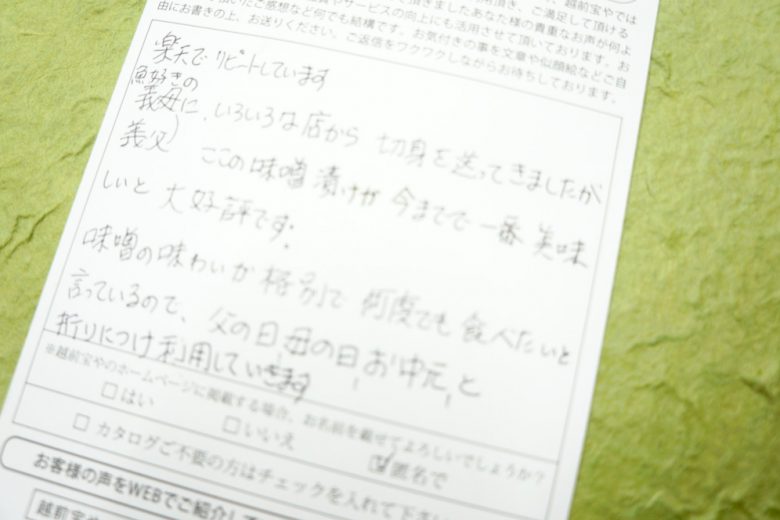 頂きましたあなた様の貴重なお声が何よ
サービスの向上にも活用させて頂いております。お
ご感想など何でも結構です。お気付きの事を文章や似顔絵などご自
由にお書きの上、お送りください。ご返信をワクワクしながらお待ちしております。
楽天でリピートしています
魚好きの
義母に、いろいろな店から 切身を送ってきましたが
義父) ここの味噌漬けが 今までで一番美味
しいと 大好評です。
味噌の味わいが格別で 何度でも食べたいと
言っているので、父の日、母の日、お中元、と
折りにつけ利用しています
※越前宝やのホームページに掲載する場合、お名前を載せてよろしいでしょうか?
□はい □いいえ ☑匿名で
□ カタログご不要の方はチェックを入れて下さい
お客様の声をWEBでご紹介して
越前宝や